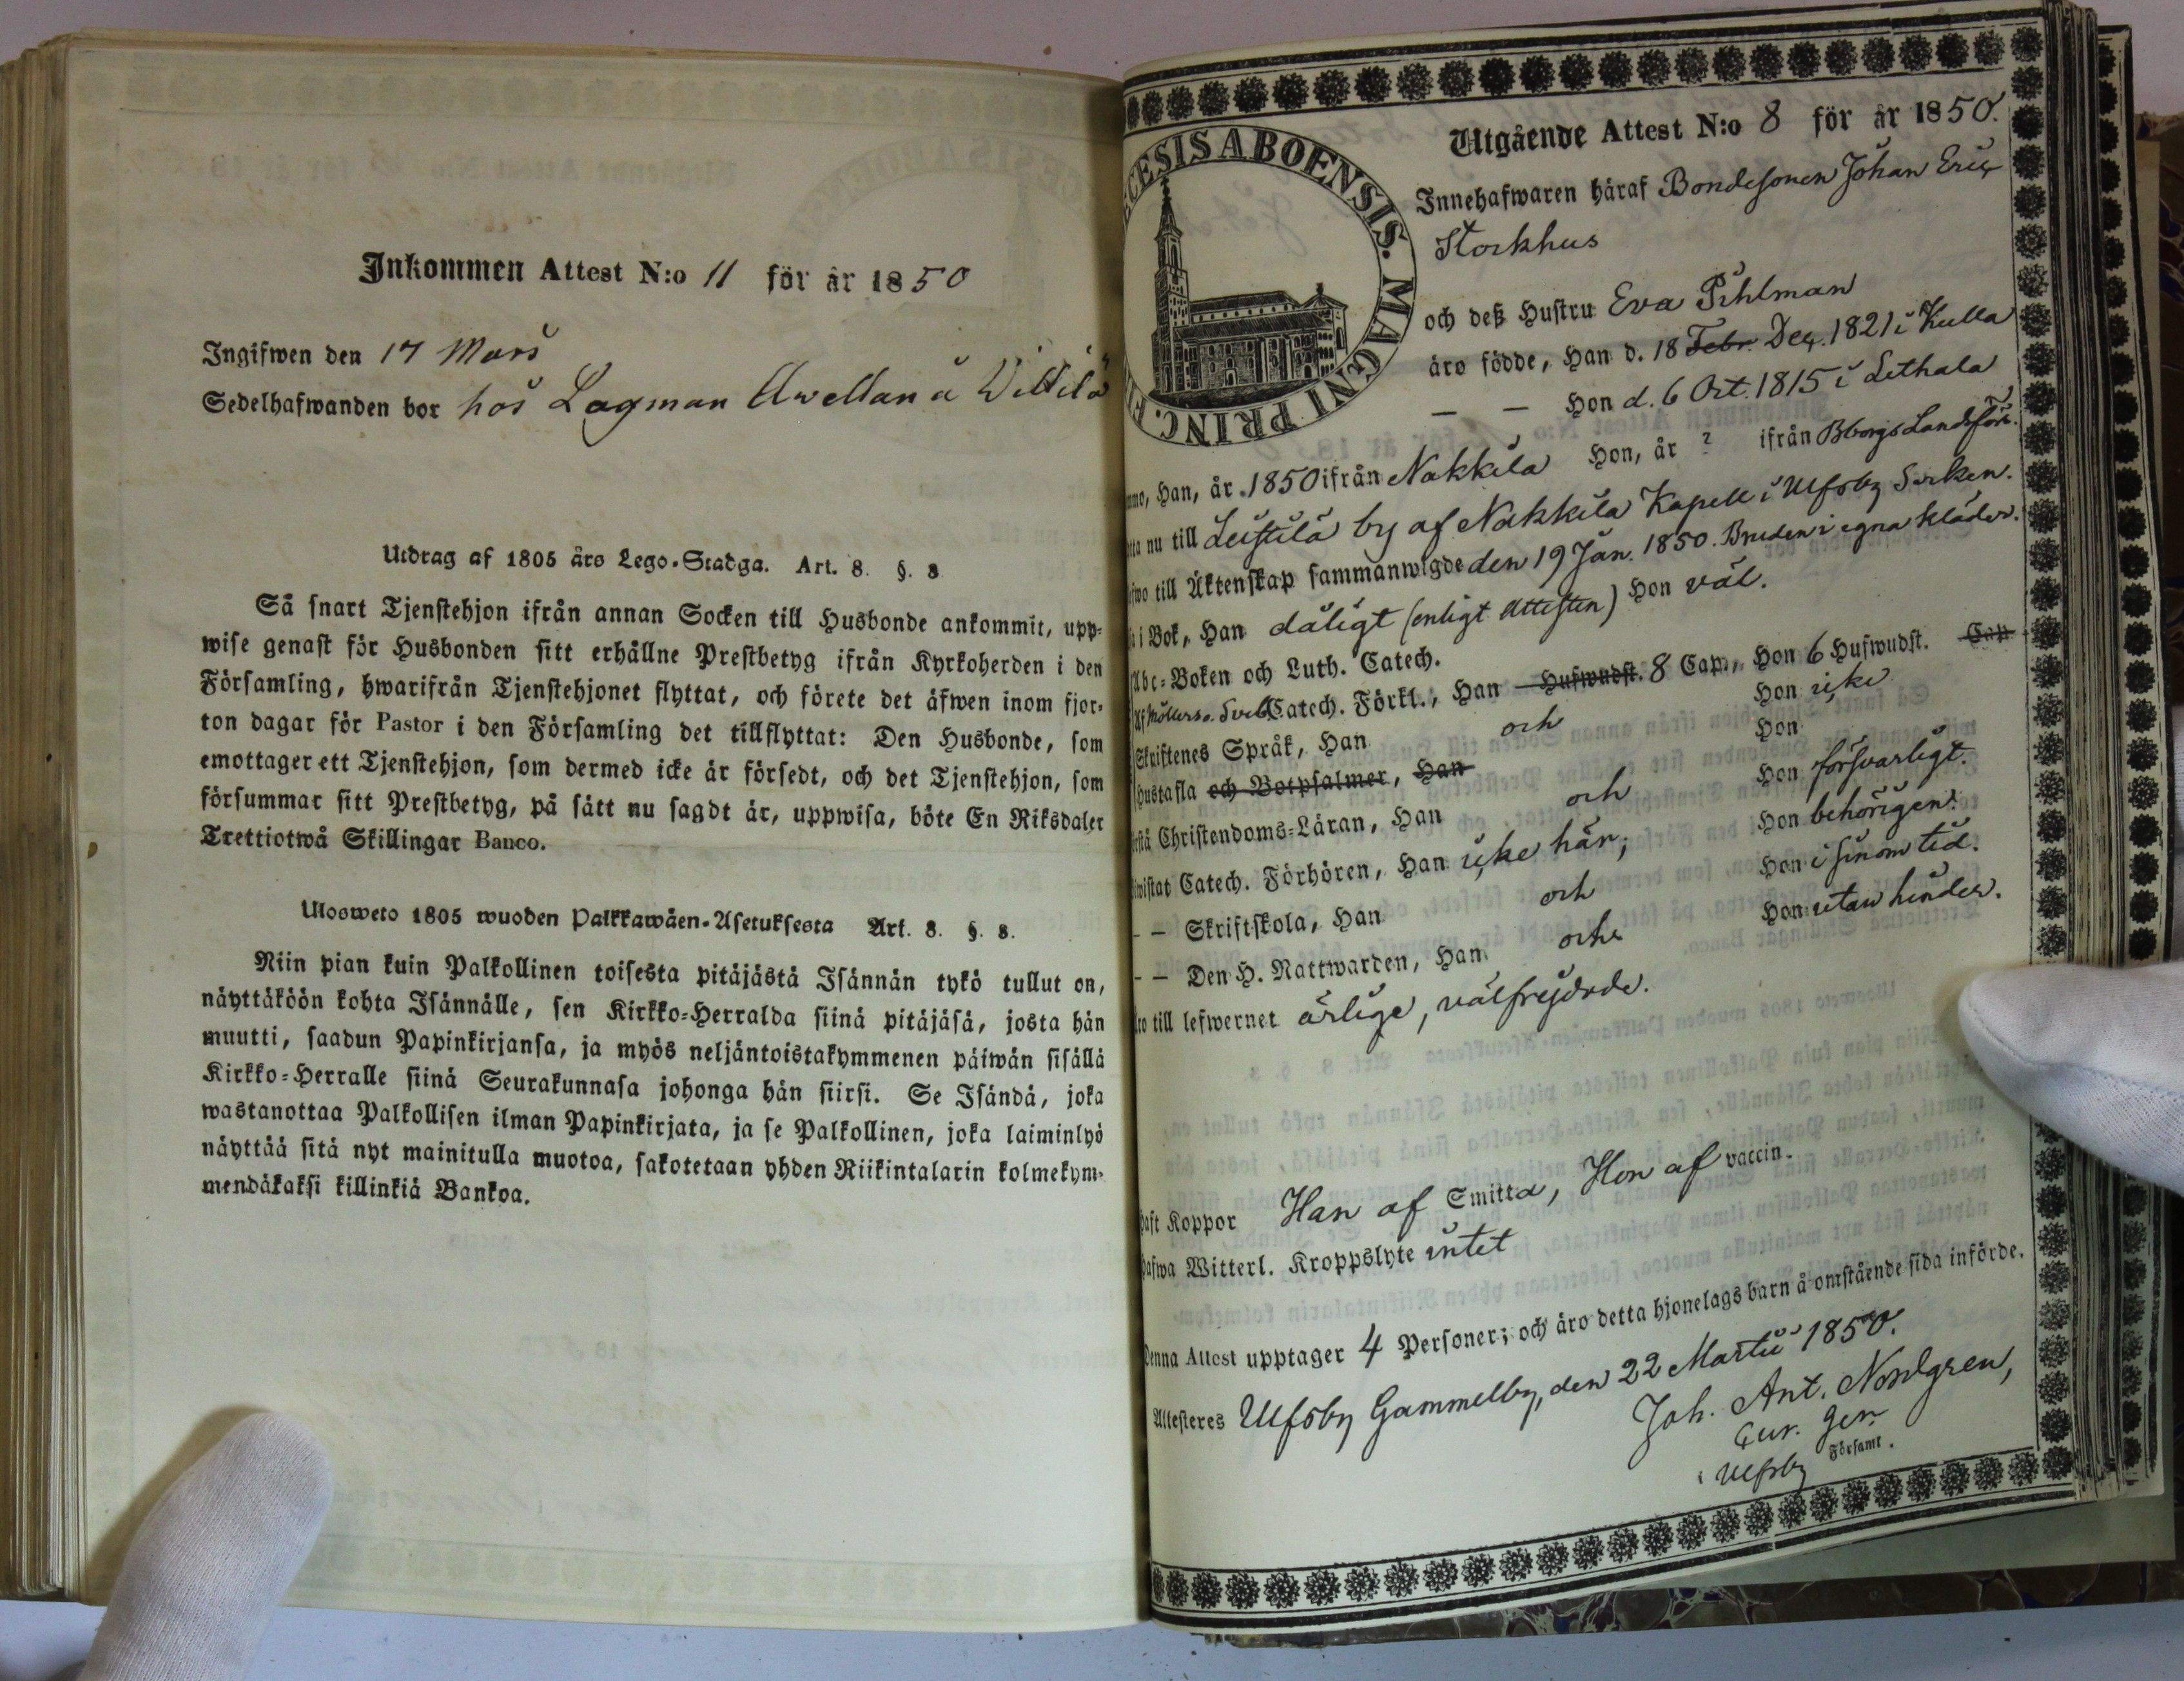 Inkommen Attest N:o 11 för år 1850
Ingifwen den 17 Mars
Sedelhafwanden bor hos Lagman Awellan å Willilä
Utdrag af 1805 års Lego-Stadga. Art. 8. §. 8
Så snart Tjenstehjon ifrån annan Socken till Husbonde ankommit, upp-
wise genast för Husbonden sitt erhållne Prestbetyg ifrån Kyrkoherden i den
Församling, hwarifrån Tjenstehjonet flyttat, och förete det äfwen inom fjor-
ton dagar för Pastor i den Församling det tillflyttat: Den Husbonde, som
emottager ett Tjenstehjon, som dermed icke är försedt, och det Tjenstehjon, som
försummar sitt Prestbetyg, på sätt nu sagdt är, uppwisa, böte En Riksdaler
Trettiotwå Skillingar Banco.
Ulosweto 1805 wuoden Palkkawäen-Asetuksesta Art. 8. §. 8.
Niin pian kuin Palkollinen toisesta pitäjästä Isännän tykö tullut on,
näyttäköön kohta Isännälle, sen Kirkko-Herralda siinä pitäjäsä, josta hän
muutti, saadun Papinkirjansa, ja myös neljäntoistakymmenen päiwän sisällä
Kirkko-Herralle siinä Seurakunnasa johonga hän siirsi. Se Isändä, joka
wastanottaa Palkollisen ilman Papinkirjata, ja se Palkollinen, joka laiminlyö
näyttää sitä nyt mainitulla muotoa, sakotetaan yhden Riikintalarin kolmekym-
mendäkaksi killinkiä Bankoa.
CESIS ABOENSIS. MAGNI PRINC.
Utgående Attest N:o 8 för år 1850.
Innehafwaren häraf Bondesonen Johan Eric
Storkhus
och deß Hustru Eva Pihlman
äro födde, Han d. 18 Febr. Dec. 1821 i Kulla
— — Hon d. 6 Oct. 1815 i Lethala
mmo, Han, år 1850 ifrån Nakkila Hon, år ? ifrån Bborgs Landsförs.
tta nu till Leistilä by af Nakkila Kapell i Ulfsby Socken.
fwo till Äktenskap sammanwigde den 19 Jan. 1850. Bruden i egna kläder.
a i Bok, Han dåligt (enligt Attesten) Hon väl.
Abc-Boken och Luth. Catech.
Af Möllers o. Sveb. Catech. Förkl., Han Hufwudst. 8 Cap., Hon 6 Hufwudst. Cap
Skriftenes Språk, Han och Hon icke
Hustafla och Botpsalmer, Han Hon
rstå Christendoms-Läran, Han och Hon försvarligt.
wistat Catech. Förhören, Han icke här; Hon behörigen.
— — Skriftskola, Han och Hon i sinom tid.
— — Den H. Nattwarden, Han och Hon utan hinder.
äro till lefwernet ärlige, välfrejdade.
haft Koppor Han af Smitta, Hon af vaccin.
hafwa Witterl. Kroppslyte intet
Denna Attest upptager 4 Personer; och äro detta hjonelags barn å omstående sida införde.
Attesteres Ulfsby Gammelby, den 22 Martii 1850.
Joh. Ant. Nordgren,
Cur. Ger.
i Ulfsby Församl.